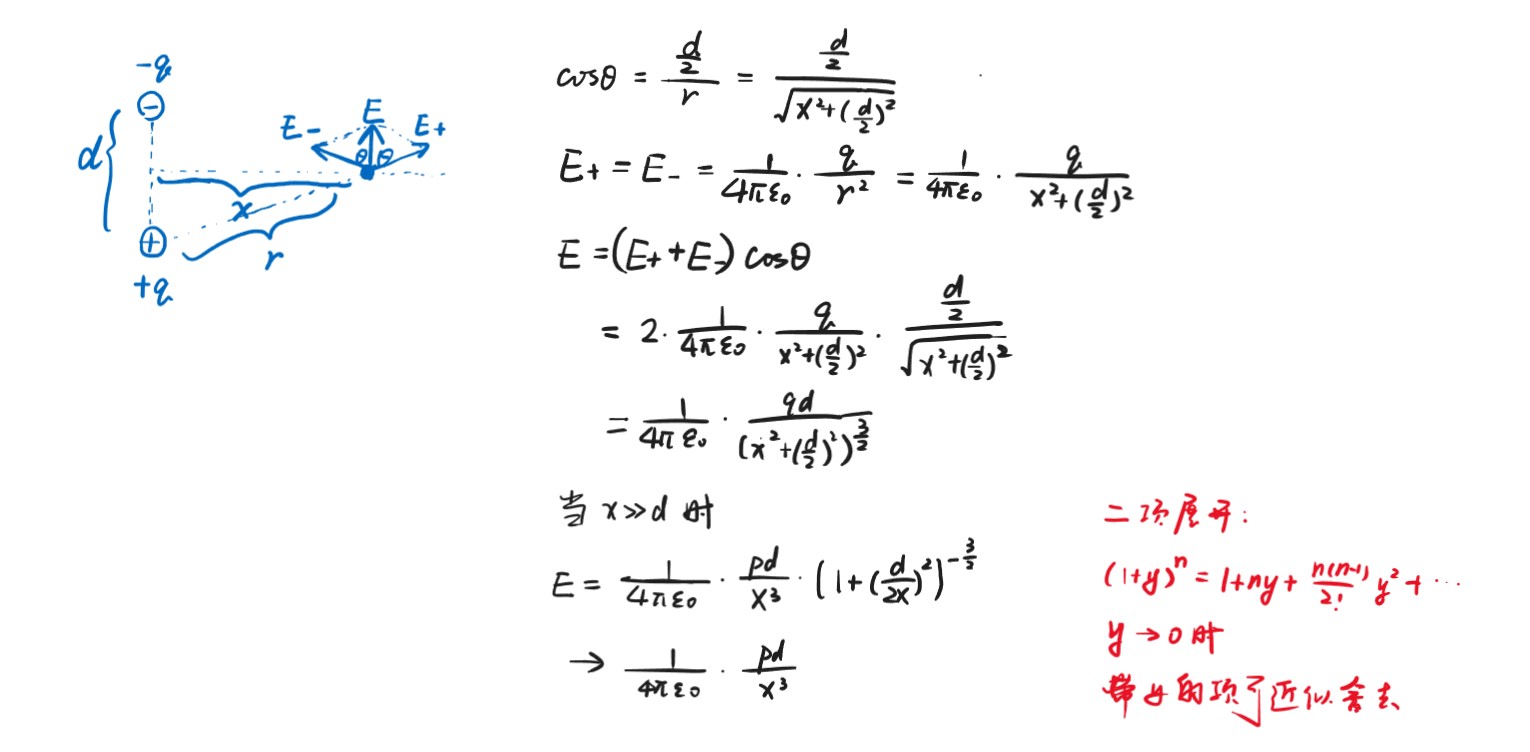 -q
d
E-
E
E+
θ
θ
x
r
+q
cosθ = \frac{\frac{d}{2}}{r} = \frac{\frac{d}{2}}{\sqrt{x²+(\frac{d}{2})²}}
E+ = E- = \frac{1}{4πε₀} · \frac{q}{r²} = \frac{1}{4πε₀} · \frac{q}{x²+(\frac{d}{2})²}
E = (E+ + E-) cosθ
= 2 · \frac{1}{4πε₀} · \frac{q}{x²+(\frac{d}{2})²} · \frac{\frac{d}{2}}{\sqrt{x²+(\frac{d}{2})²}}
= \frac{1}{4πε₀} · \frac{qd}{(x²+(\frac{d}{2})²)^{\frac{3}{2}}}
当 x≫d 时
E = \frac{1}{4πε₀} · \frac{pd}{x³} · (1+(\frac{d}{2x})²)^{-\frac{3}{2}}
→ \frac{1}{4πε₀} · \frac{pd}{x³}
二项展开:
(1+y)^n = 1+ny+\frac{n(n-1)}{2!}y²+…
y→0时
带y的项可近似舍去